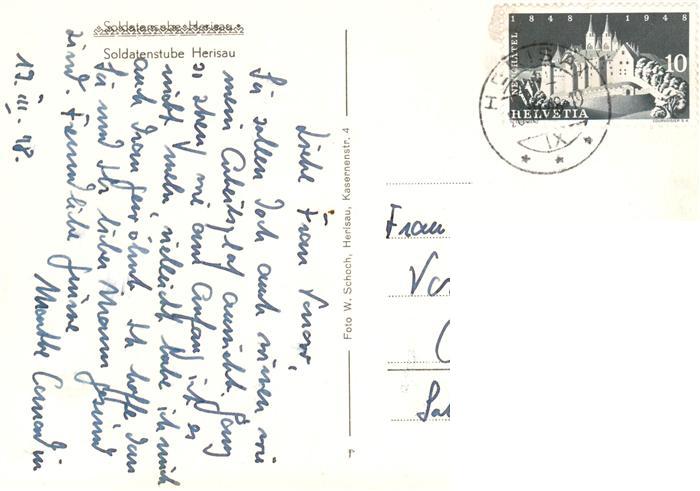 Soldatenstube Herisau
Soldatenstube Herisau
Liebe Frau
Sie sollen doch auch wissen wie
mein Arbeitsplatz aussieht. Ganz
so schön wie am Anfang ist es
nicht mehr, vielleicht habe ich mich
auch dran gewöhnt. Ich hoffe dass
Sie und Ihr lieber Mann gesund
sind. Freundliche Grüsse
Marthe
17. III. 48.
Foto W. Schoch, Herisau, Kasernenstr. 4
1848 1948
NEUCHÂTEL
10
HELVETIA
COURVOISIER S.A.
HERISAU
IX
Frau